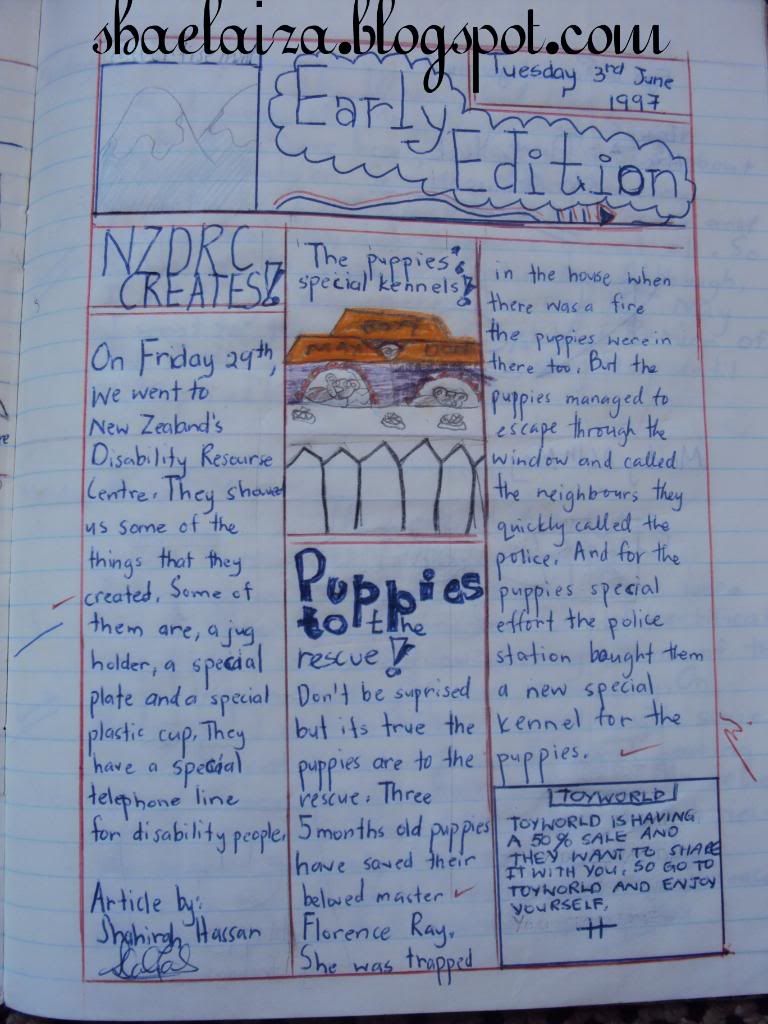 shaelaiza.blogspot.com
Tuesday 3rd June
1997
Early
Edition
NZDRC
CREATES!
On Friday 29th,
we went to
New Zealand's
Disability Resourse
Centre. They showed
us some of the
things that they
created. Some of
them are, a jug
holder, a special
plate and a special
plastic cup. They
have a special
telephone line
for disability people.
Article by:
Shahirah Hassan
The puppies'
special kennels!
Puppies
to the
rescue!
Don't be suprised
but its true the
puppies are to the
rescue. Three
5 months old puppies
have saved their
beloved master
Florence Ray.
She was trapped
in the house when
there was a fire
the puppies were in
there too. But the
puppies managed to
escape through the
window and called
the neighbours they
quickly called the
police. And for the
puppies special
effort the police
station bought them
a new special
kennel for the
puppies.
TOYWORLD
TOYWORLD IS HAVING
A 50% SALE AND
THEY WANT TO SHARE
IT WITH YOU. SO GO TO
TOYWORLD AND ENJOY
YOURSELF.